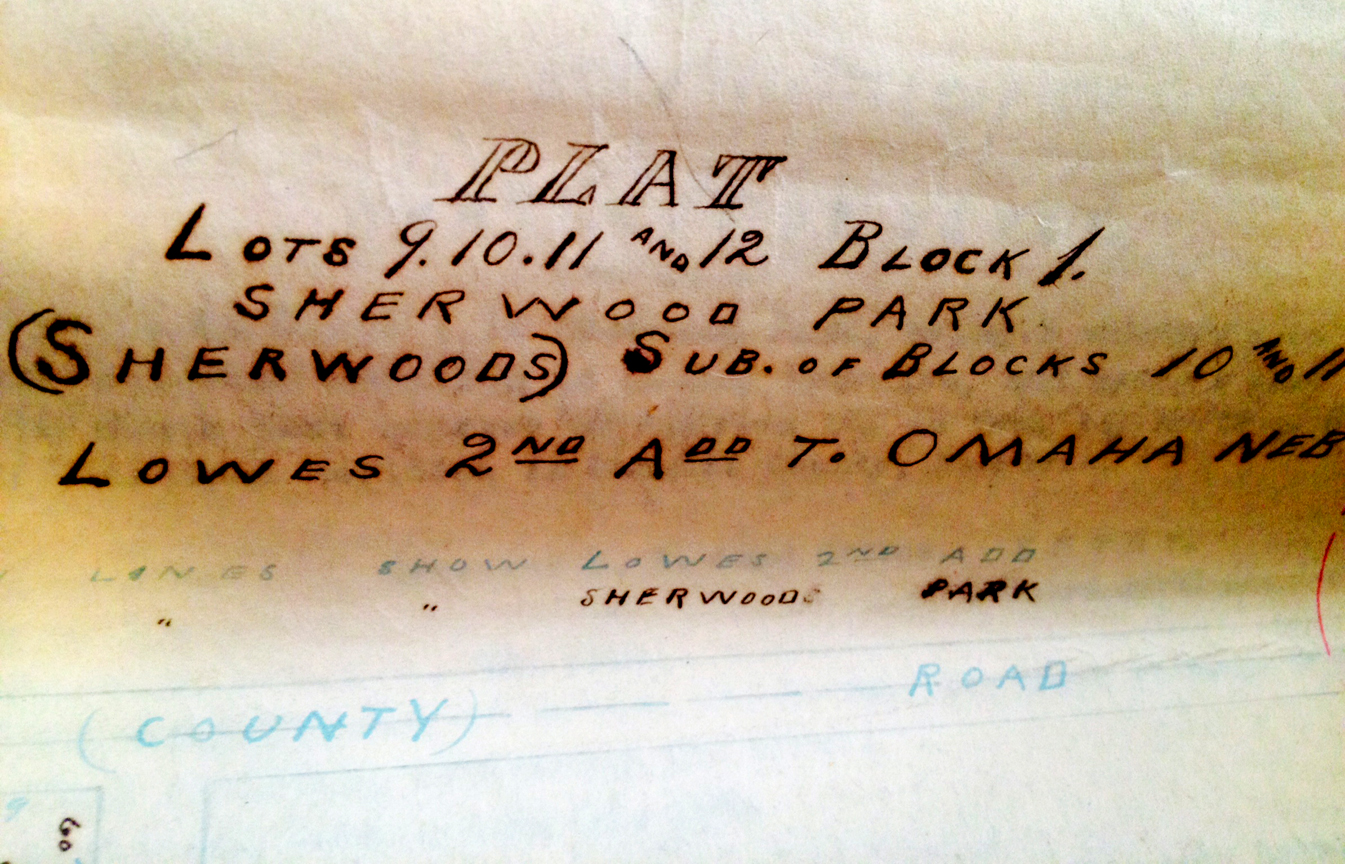 PLAT
LOTS 9.10.11 AND 12 BLOCK 1.
SHERWOOD PARK
(SHERWOODS) SUB. OF BLOCKS 10 AND 11
LOWES 2ND ADD T. OMAHA NEB
LINES SHOW LOWES 2ND ADD
" " SHERWOODS PARK
(COUNTY) ROAD
9
60